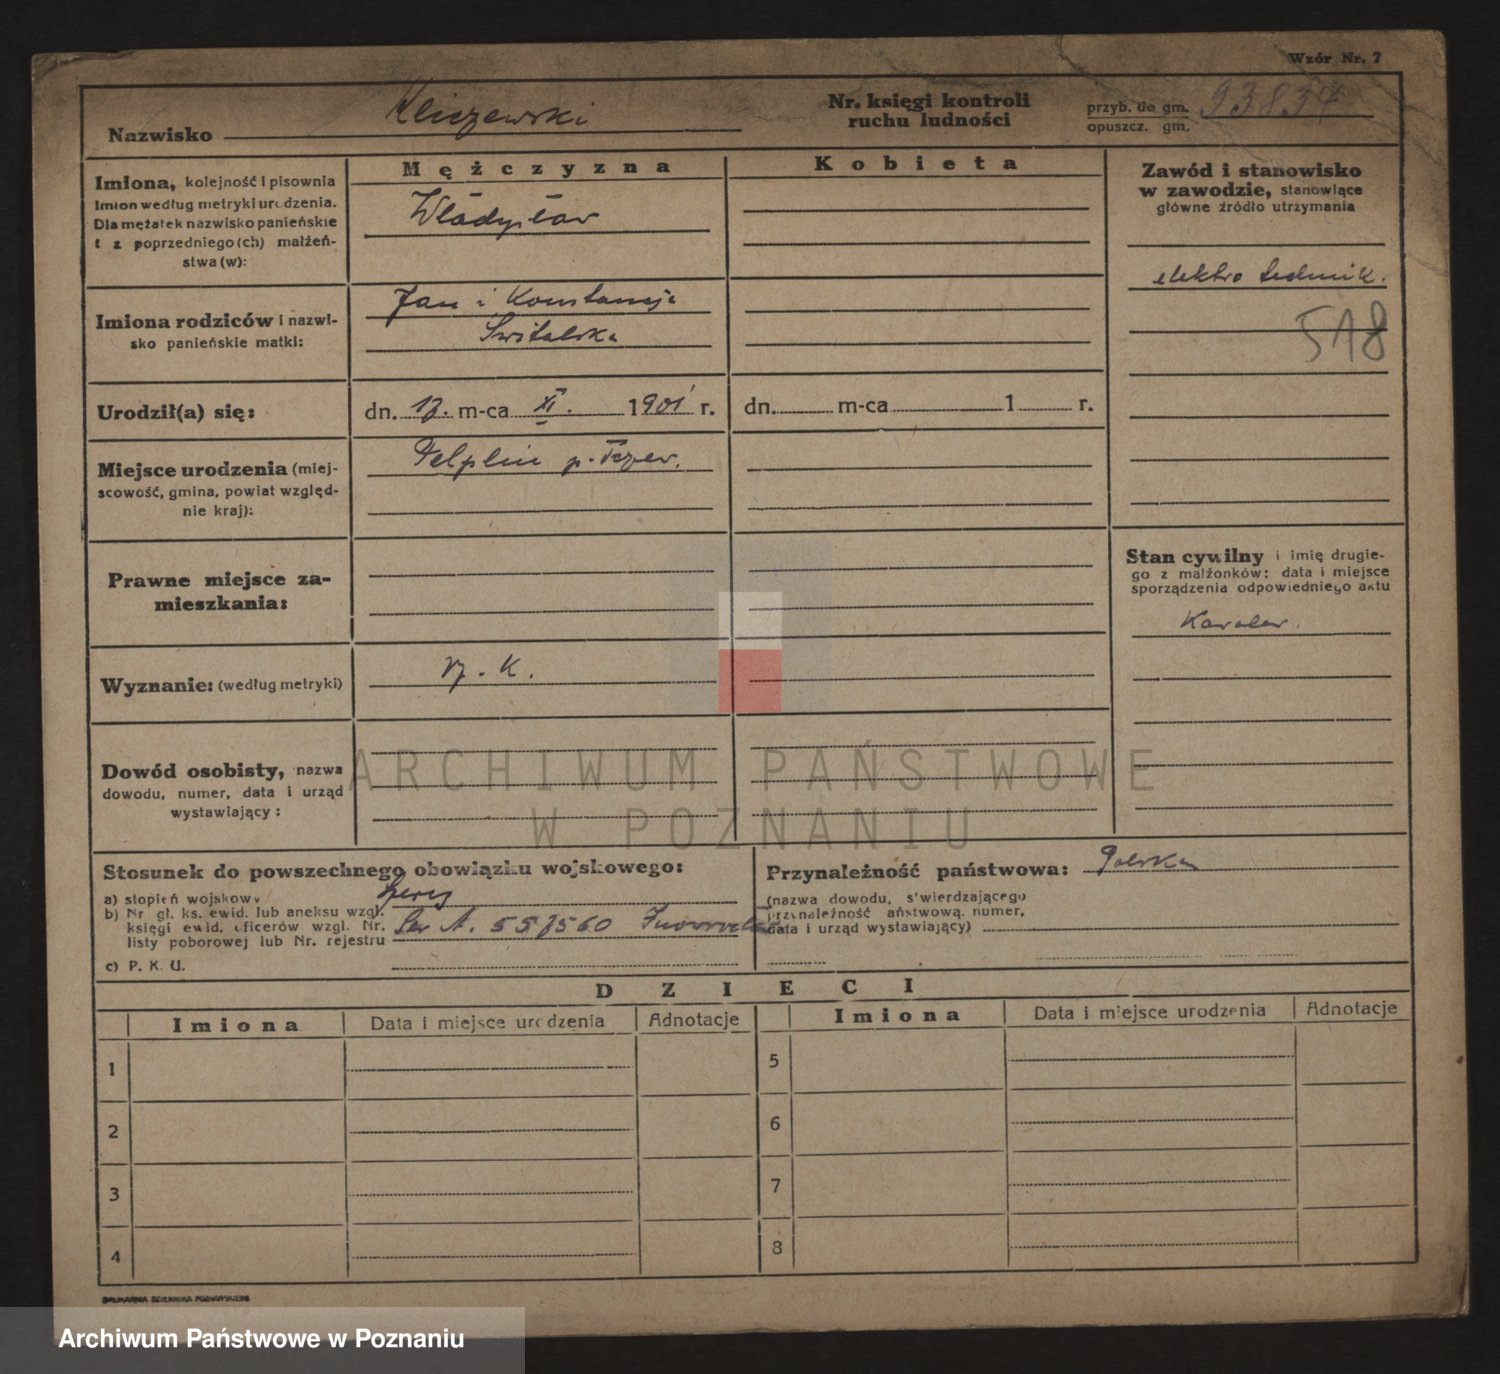 Wzór Nr. 7
Nazwisko Kliczewski
Nr. księgi kontroli
ruchu ludności
przyb. do gm.
opuszcz. gm.
93834
Mężczyzna
Kobieta
Imiona, kolejność i pisownia
imion według metryki urodzenia.
Dla mężatek nazwisko panieńskie
i z poprzedniego (ch) małżeń-
stwa (w):
Władysław
Zawód i stanowisko
w zawodzie, stanowiące
główne źródło utrzymania
elektro technik.
518
Imiona rodziców i nazwi-
sko panieńskie matki:
Jan i Konstancja
Świtalska
Urodził(a) się:
dn. 17. m-ca XI. 1901 r.
dn. m-ca 1 r.
Miejsce urodzenia (miej-
scowość, gmina, powiat względ-
nie kraj):
Pelplin p. Tczew.
Prawne miejsce za-
mieszkania:
Stan cywilny i imię drugie-
go z małżonków: data i miejsce
sporządzenia odpowiedniego aktu
Kawaler.
Wyznanie: (według metryki)
rz. K.
Dowód osobisty, nazwa
dowodu, numer, data i urząd
wystawiający:
ARCHIWUM PAŃSTWOWE
W POZNANIU
Stosunek do powszechnego obowiązku wojskowego:
a) stopień wojskowy szereg
b) Nr gł. ks. ewid. lub aneksu wzgl.
księgi ewid. oficerów wzgl. Nr.
listy poborowej lub Nr. rejestru
Ser A. 557560
c) P. K. U.
Przynależność państwowa: Polska
(nazwa dowodu, s'wierdzającego
przynależność państwową, numer,
data i urząd wystawiający)
DZIECI
Imiona Data i miejsce urodzenia Adnotacje
Imiona Data i miejsce urodzenia Adnotacje
1 5
2 6
3 7
4 8
DRUKARNIA DZIENNIKA POZNAŃSKIEGO
Archiwum Państwowe w Poznaniu